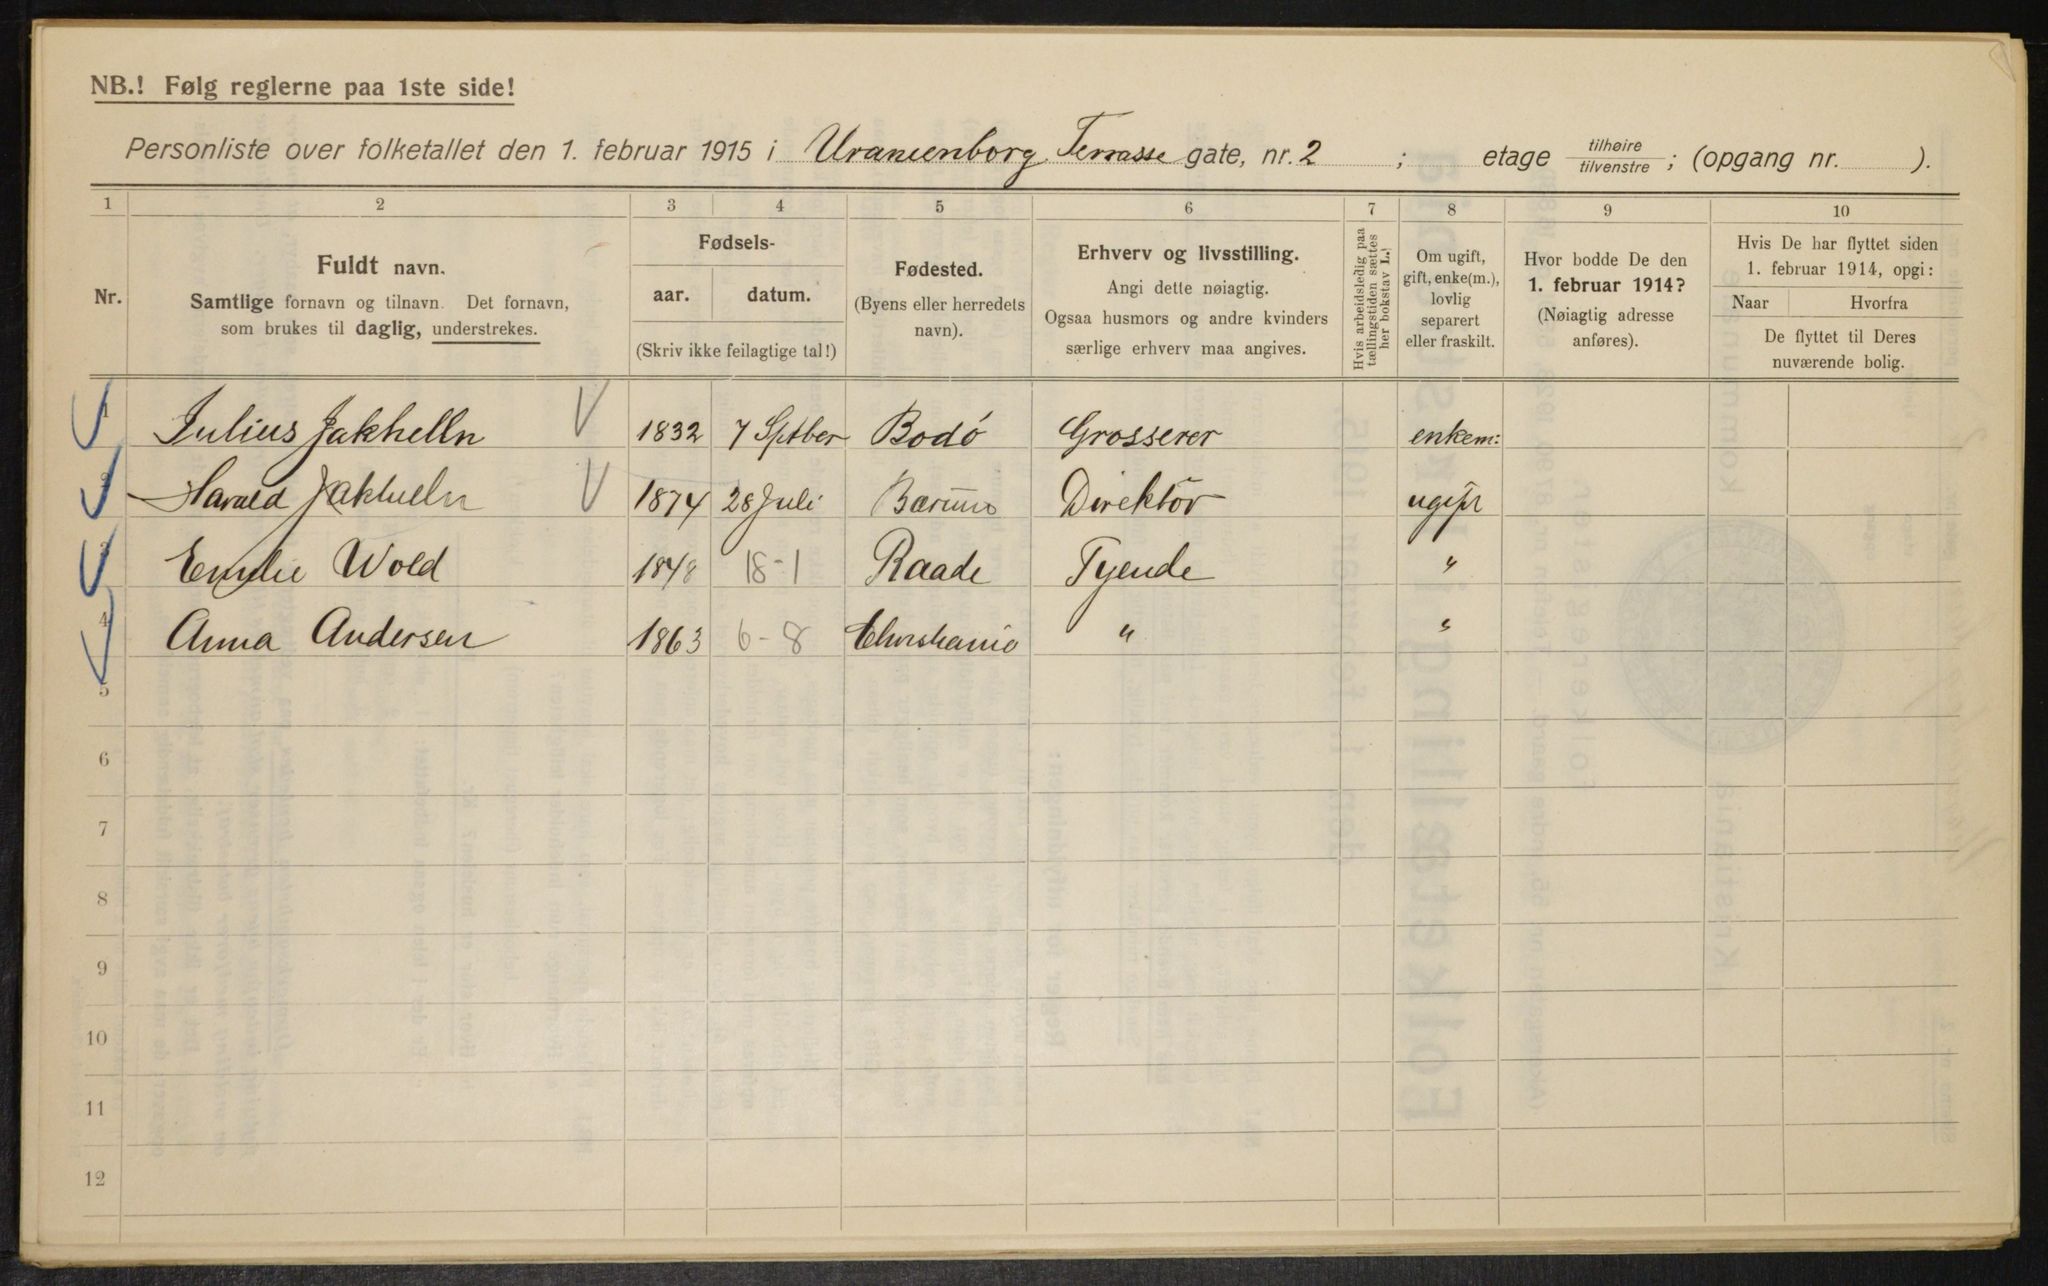 NB.! Følg reglerne paa 1ste side!
Personliste over folketallet den 1. februar 1915 i Uranienborg Terrasse gate, nr. 2 ; etage tilhøire tilvenstre ; (opgang nr. ).
1 2 3 4 5 6 7 8 9 10
Nr.
Fuldt navn.
Samtlige fornavn og tilnavn. Det fornavn,
som brukes til daglig, understrekes.
Fødsels-
aar. datum.
(Skriv ikke feilagtige tal!)
Fødested.
(Byens eller herredets
navn).
Erhverv og livsstilling.
Angi dette nøiagtig.
Ogsaa husmors og andre kvinders
særlige erhverv maa angives.
Hvis arbeidsledig paa
tællingstiden sættes
her bokstav L.!
Om ugift,
gift, enke(m.),
lovlig
separert
eller fraskilt.
Hvor bodde De den
1. februar 1914?
(Nøiagtig adresse
anføres).
Hvis De har flyttet siden
1. februar 1914, opgi:
Naar Hvorfra
De flyttet til Deres
nuværende bolig.
1 Julius Jakhelln 1832 7 Sptber Bodó Grosserer enkem:
2 Harald Jakhelln 1874 28 Juli Bærum Direktör ugift
3 Emilie Wold 1848 18-1 Raade Tyende "
4 Anna Andersen 1863 6-8 Christiania " "
5
6
7
8
9
10
11
12